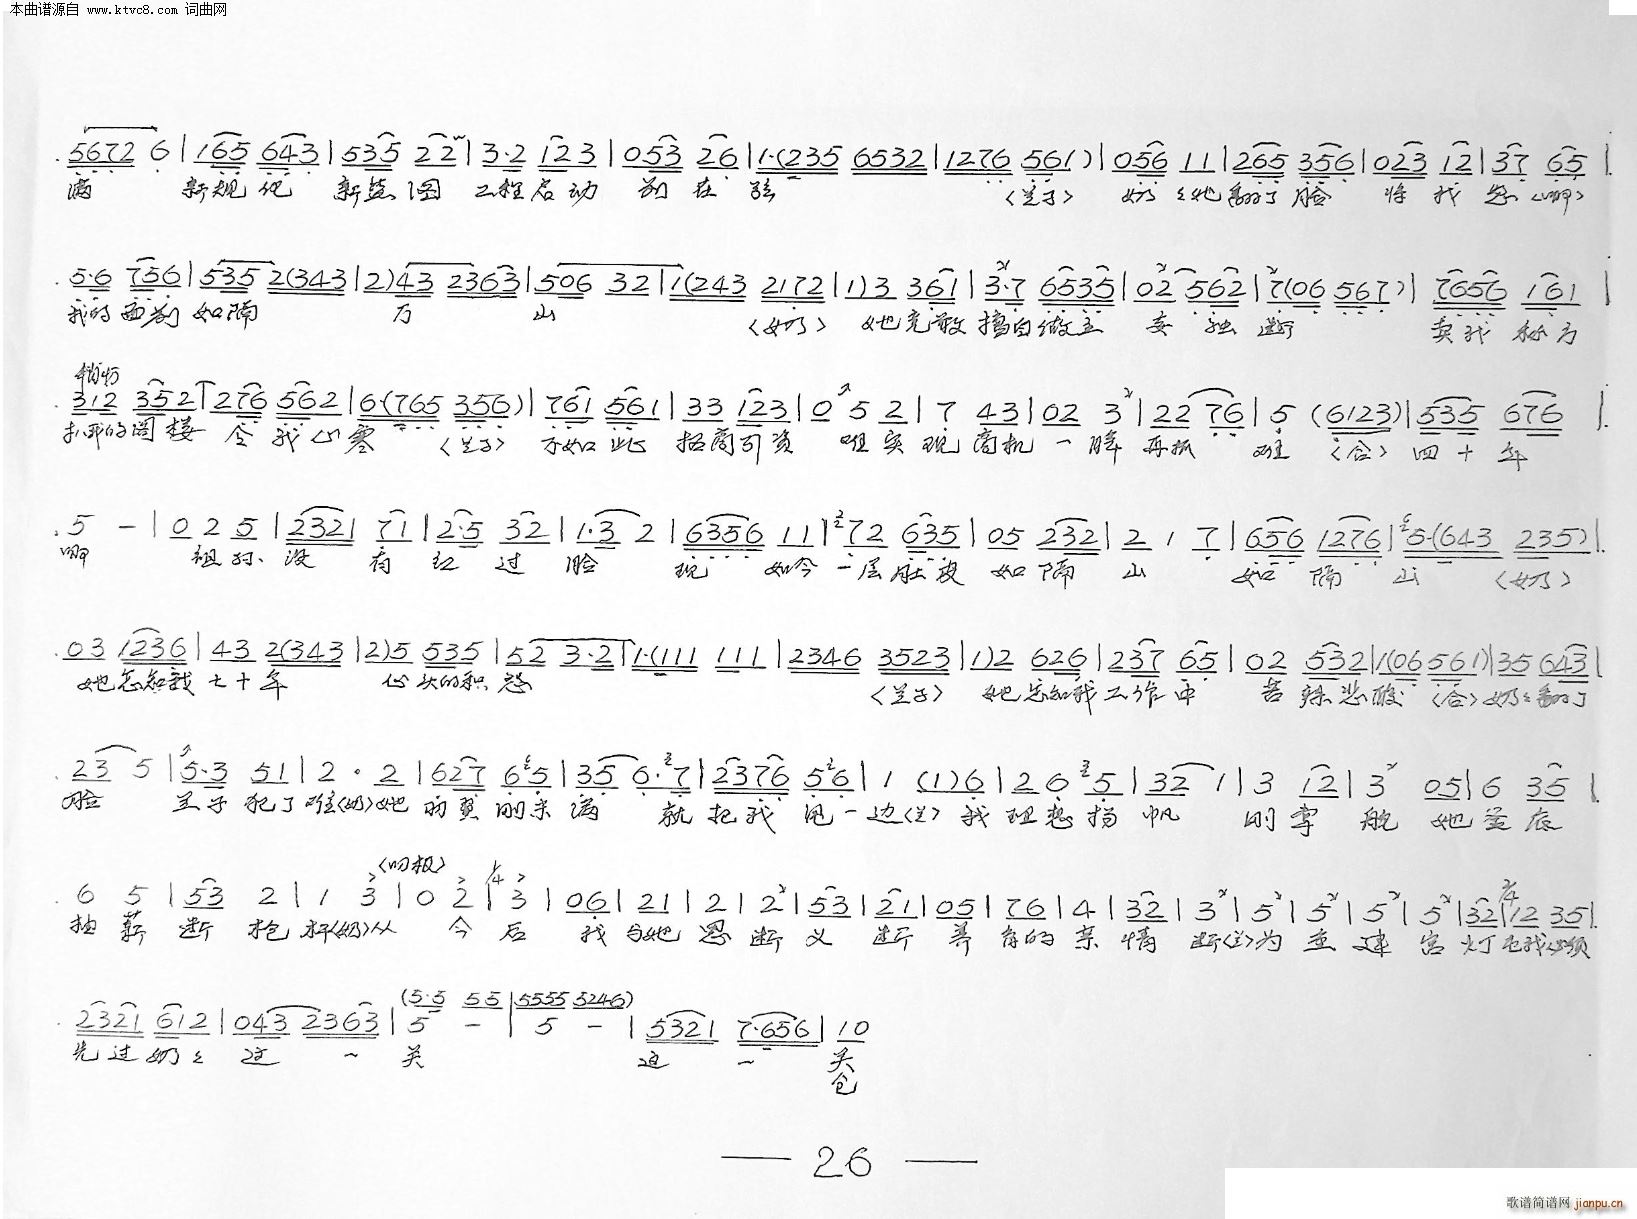 本曲谱源自 www.ktvc8.com 词曲网
5672 6 | 165 643 | 535 22 | 3·2 123 | 053 26 | 1·(235 6532 | 1276 561) | 056 11 | 265 356 | 023 12 | 37 65 |
满 新规化 新蓝图 工程启动 前在弦 〈兰子〉 奶ミ她翻了脸 将我怨〈啊〉
5·6 756 | 535 2(343 | 2)43 2363 | 506 32 | 1(243 2172 | 1)3 361 | 3·7 6535 | 02 562 | 7(06 567) | 7656 161 |
我的面前如隔 万 山 〈奶〉 她竟敢擅自做主 妄独断 卖我秘方
312 352 | 276 562 | 6·(765 356) | 761 561 | 33 123 | 0 5 2 | 7 43 | 02 3 | 22 76 | 5 (6123) | 535 676 |
扒我的阁楼 令我心寒 〈兰子〉 不如此 招商引资 难实现商机一瞬再抓 难 〈合〉四十年
5 - | 0 2 5 | 2321 71 | 2·5 32 | 1·3 2 | 6356 11 | 72 635 | 05 232 | 2 1 7 | 656 1276 | 5·(643 235) |
啊 祖孙没有红过脸 现 如今一层肚皮如隔山 如隔 山 〈奶〉
03 1236 | 43 2(343 | 2)5 535 | 52 3·2 | 1·(111 111 | 2346 3523 | 1)2 626 | 237 65 | 02 532 | 1(06 561) | 35 643 |
她怎知我七十年 心头的积怨 〈兰子〉 她怎知我工作中 苦辣悲酸〈合〉奶ミ翻了
23 5 | 5·3 51 | 2 · 2 | 627 65 | 35 6·7 | 2376 56 | 1 (1)6 | 26 5 | 32 1 | 3 12 | 3 05 | 6 35 |
脸 兰子犯了难〈奶〉她 的翼刚未满 就把我甩一边〈兰〉我理想挡帆 刚掌舵她釜底
6 5 | 53 2 | 1 3 | 0 2 | 3 | 06 | 21 | 2 | 2 | 53 | 21 | 05 | 76 | 4 | 32 | 3 | 5 | 5 | 5 | 5 | 32 | 12 35 |
抽薪断 〈奶〉从 今 后 我与她恩断义断 养育的亲情断〈兰〉为重建宫灯 我必须
2321 612 | 043 2363 | 5 - | 5 - | 5321 7·656 | 10
(5·5 55 5555 5246)
先过奶ミ这 一 关 这 一 关
仓
— 26 —
歌谱简谱网 jianpu.cn